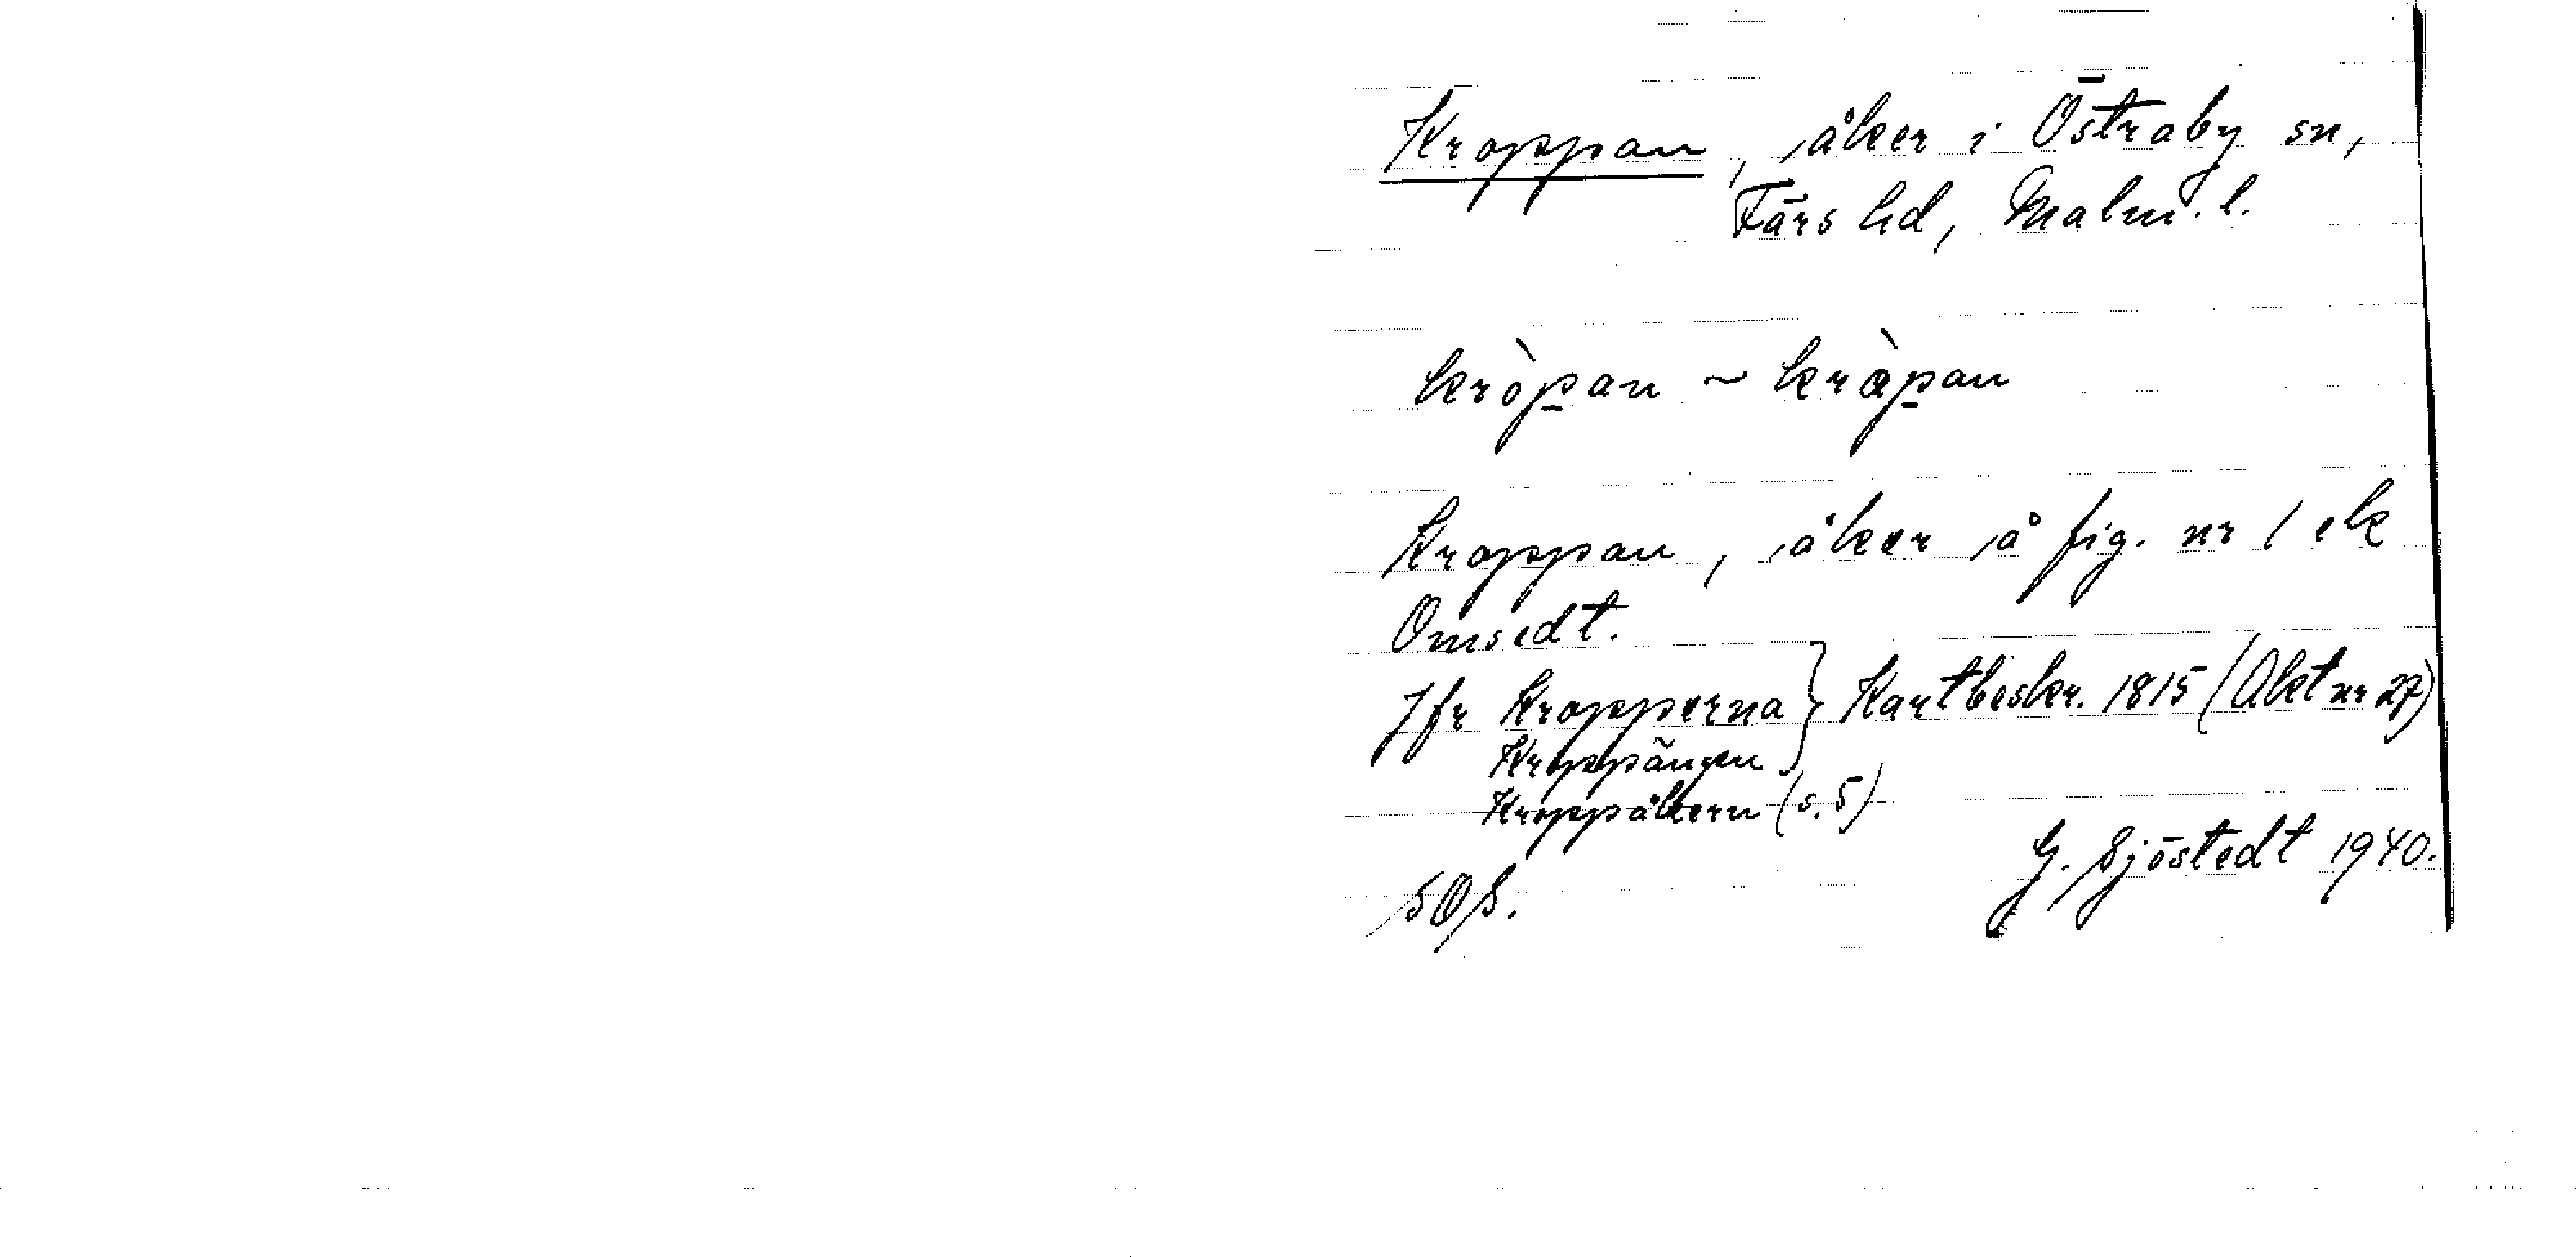 Kroppan, åker i Östraby sn,
Färs hd, Malm. l.
kròp̲an ~ kràp̲an
Kroppan, åker å fig. nr 1 ek
Omsedt.
Jfr Kropperna } Kartbeskr. 1815 (Akt nr 27)
Kroppängen
Kroppåkern (s. 5)
G. Sjöstedt 1940.